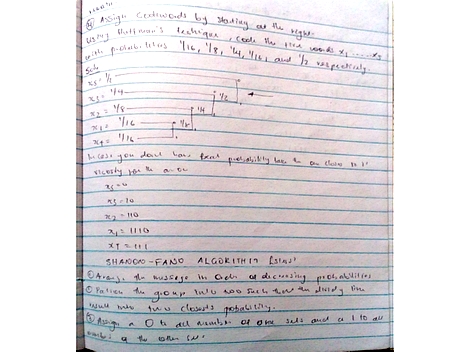 ④ Assign Codewords by starting at the right.
Using Huffman's technique, code the five words x₁ ..... x₅
with probabilities 1/16, 1/8, 1/4, 1/16, and 1/2 respectively.
Soln
x₅ = 1/2
x₃ = 1/4
x₂ = 1/8
x₁ = 1/16
x₄ = 1/16
1/2
1/4
1/8
In case you don't have
x₅ = 0
x₃ = 10
x₂ = 110
x₁ = 1110
x₄ = 1111
SHANON-FANO ALGORITHM [steps]
① Arrange the message in order of decreasing probabilities
② the group into two such that the dividing line
into two closest probability.
③ Assign a 0 to all number of one sets and a 1 to all
numbers of the other set.